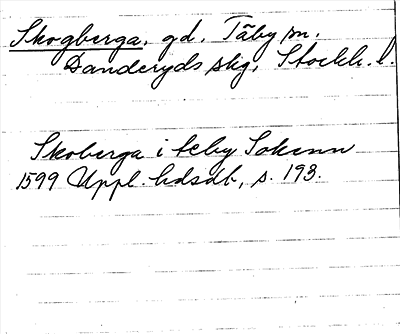 Skogberga, gd. Täby sn.
Danderyds slg, Stockh. l.
Skoberga i teby Sokenn
1599 Uppl. hdsdb, s. 193.